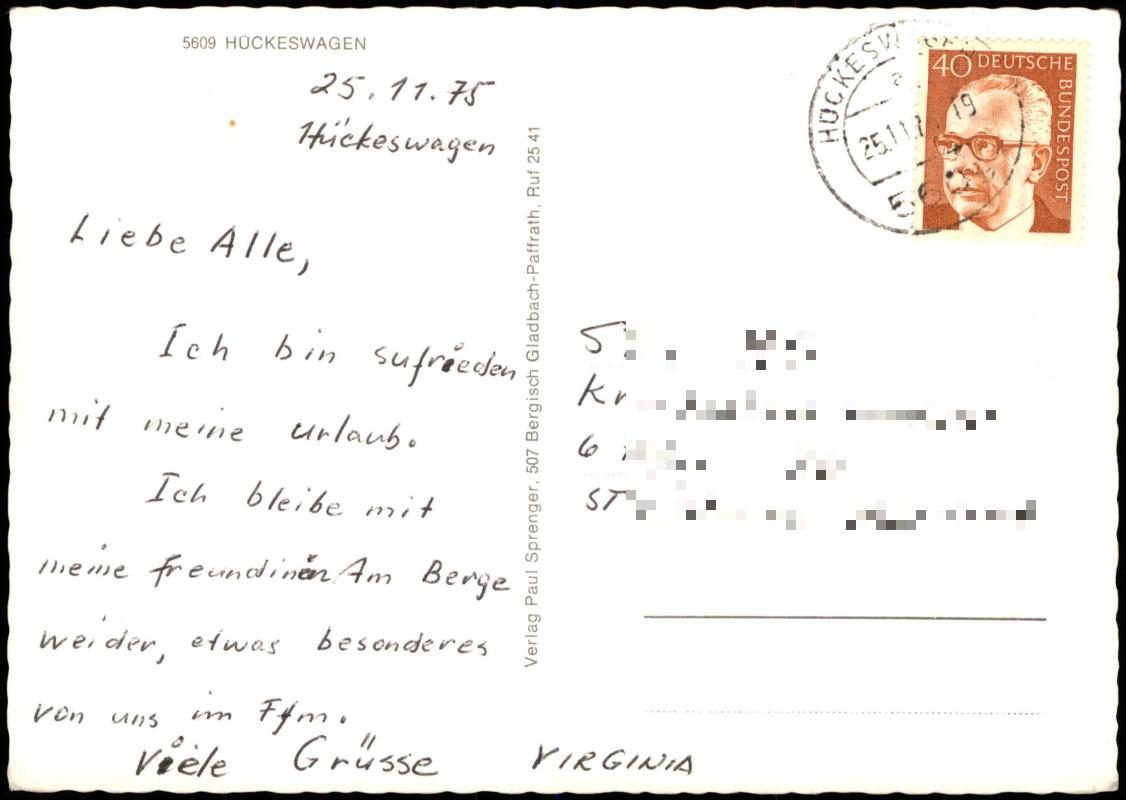 5609 HÜCKESWAGEN
25.11.75
Hückeswagen
Liebe Alle,
Ich bin sufrieden
mit meine urlaub.
Ich bleibe mit
meine freundinen Am Berge
weider, etwas besonderes
von uns im Ffm.
Viele Grüsse VIRGINIA
Verlag Paul Sprenger, 507 Bergisch Gladbach-Paffrath, Ruf 25 41
HÜCKESWAGEN
25.11.7 19
40 DEUTSCHE
BUNDESPOST
S
Kr
6
ST